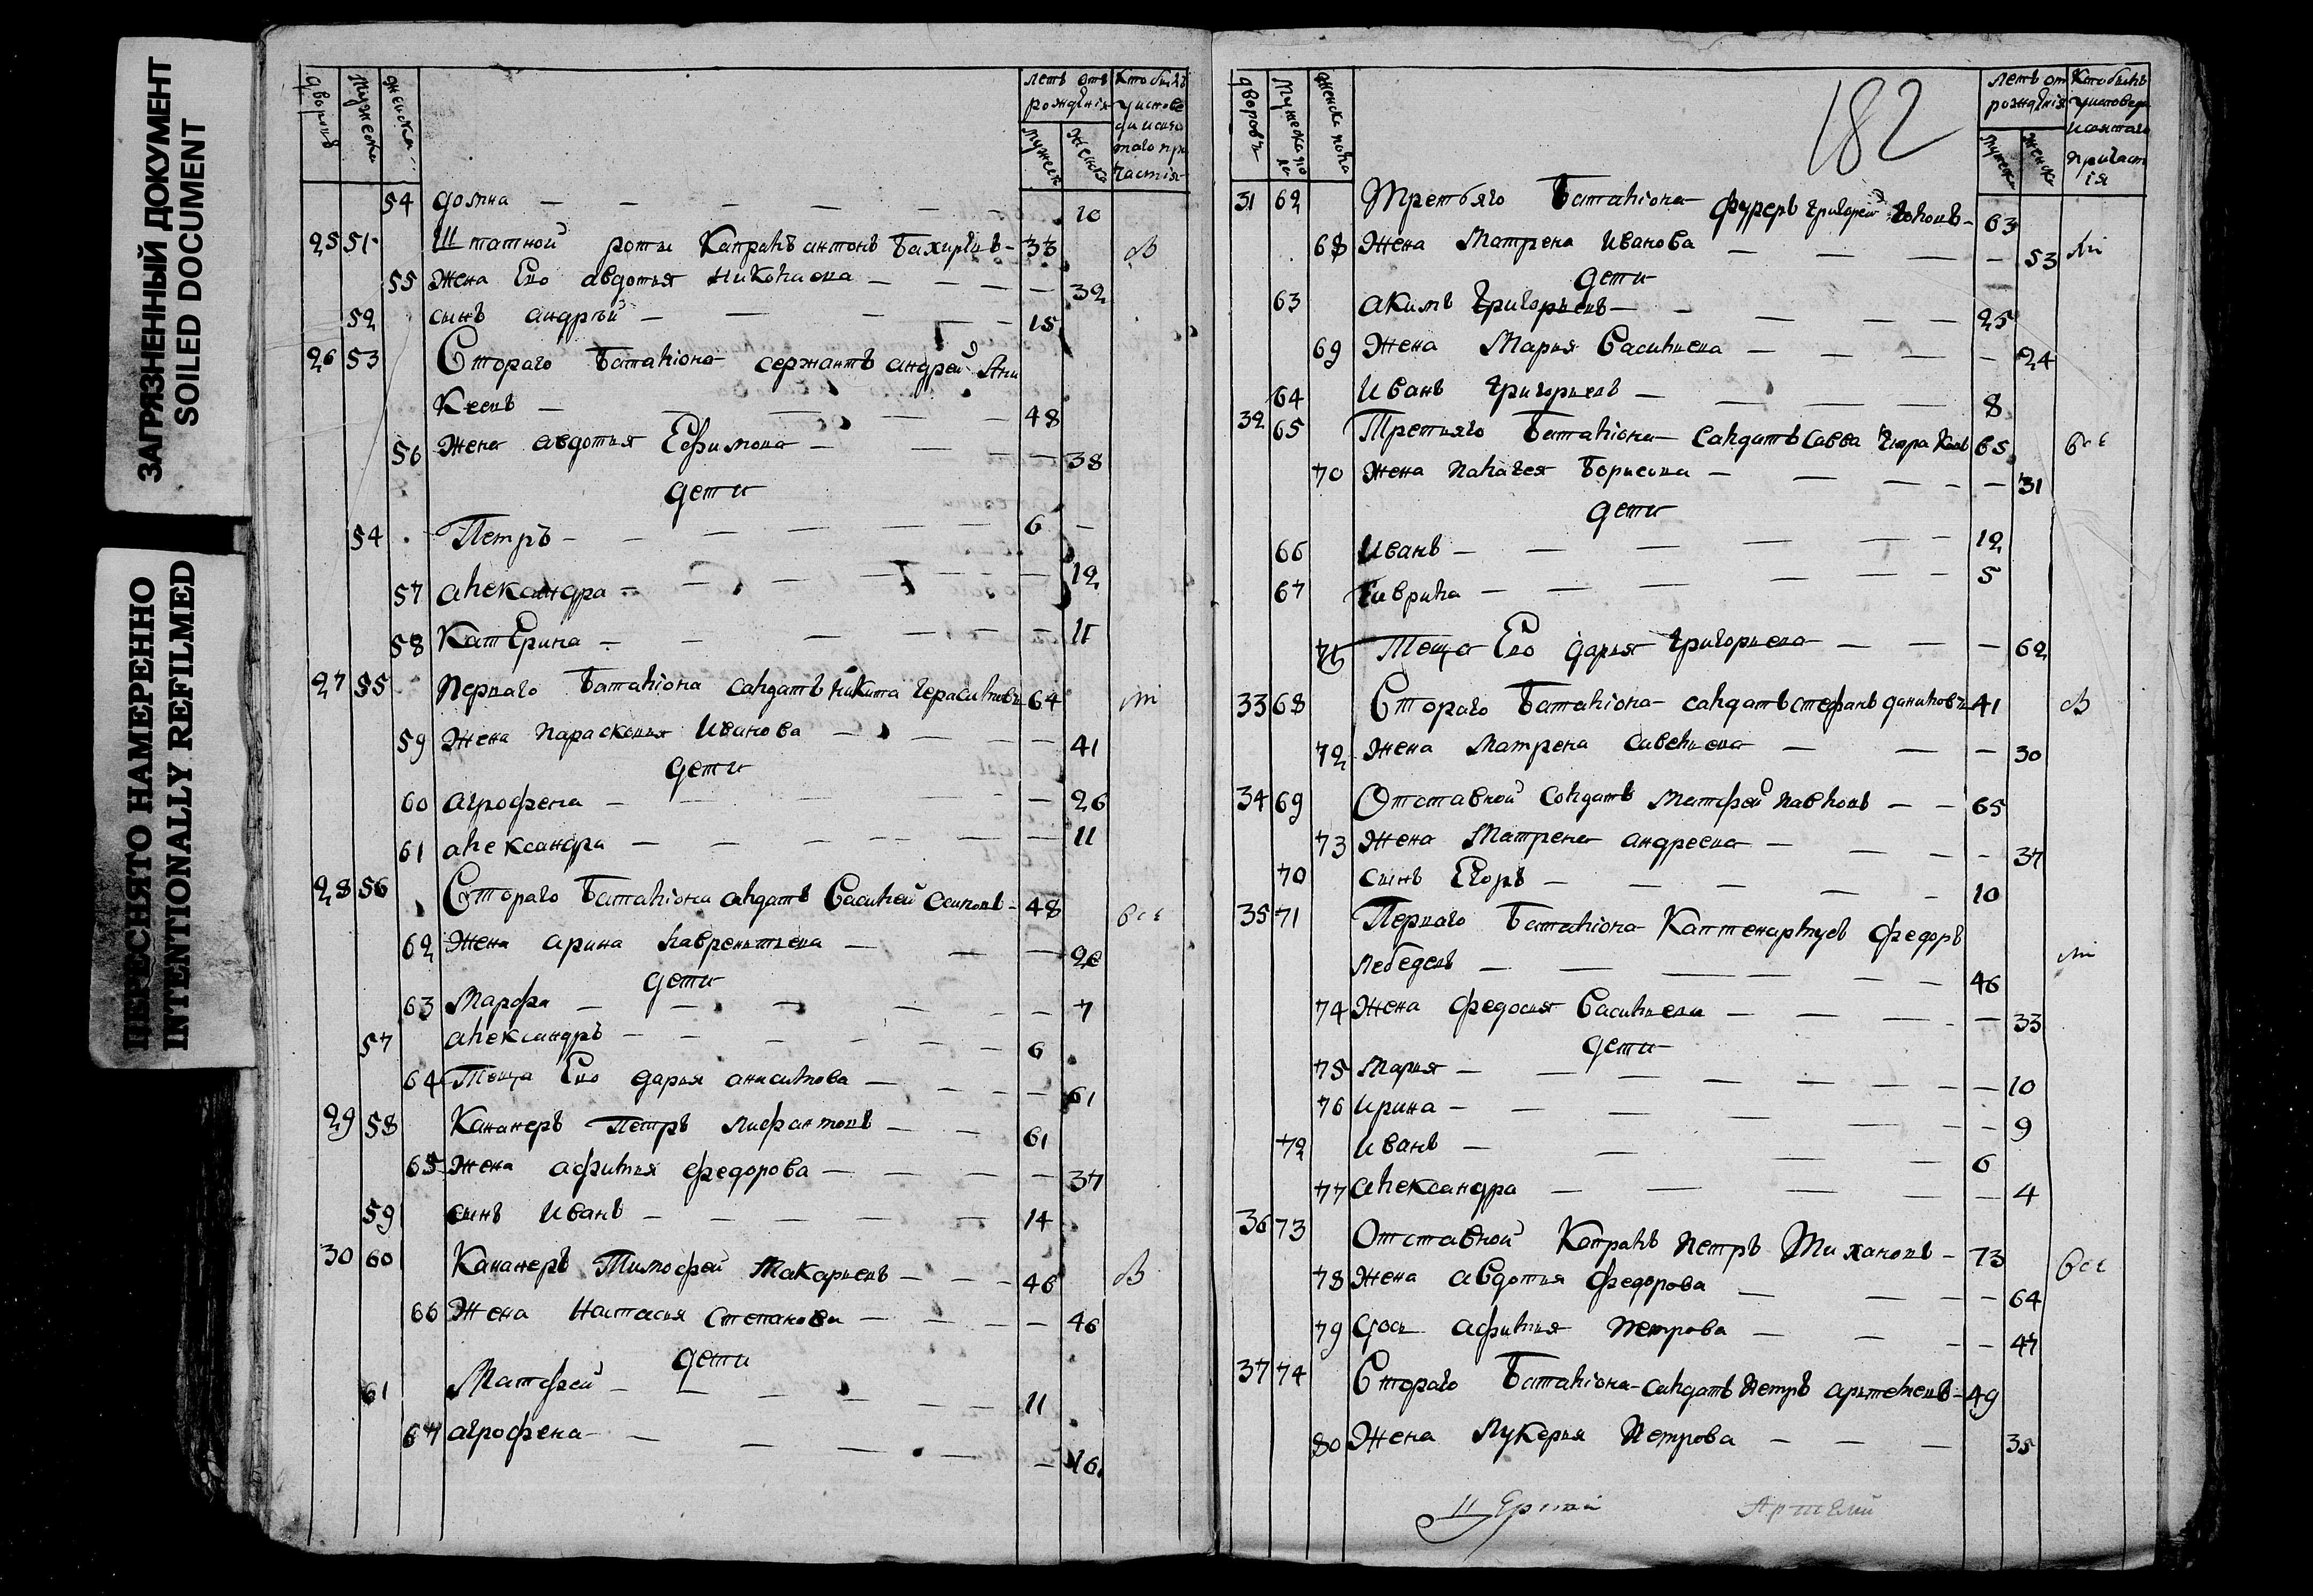 ЗАГРЯЗНЕННЫЙ ДОКУМЕНТ
SOILED DOCUMENT
ПЕРЕСНЯТО НАМЕРЕННО
INTENTIONALLY REFILMED
дворовъ мужеска женска летъ отъ рожденія мужеск женска
54 домна — 10
25 51 Штатной роты Капралъ антонъ — 33
55 Жена Его авдотья николаева — 32
52 сынъ андрей — 15
26 53 Втораго Баталіона сержантъ андрей Ани
кеевъ — 48
56 Жена авдотья Ефимова — 38
дети
54 Петръ — 6 —
57 александра — 12
58 КатЕрина — 11
27 55 перваго Баталіона салдатъ никита герасимовъ 64
59 Жена парасковья Иванова — 41
дети
60 агрофена — 26
61 александра — 11
28 56 Втораго Баталіона салдатъ Василей — 48 все
62 Жена арина лаврентьева —
дети
63 Марфа — 7
57 александръ — 6
64 Теща Его дарья анисимова — 61
29 58 Кананеръ Петръ — 61
65 Жена афимья федорова — 37
59 сынъ Иванъ — 14
30 60 Кананеръ Тимофей Макарьевъ — 46
66 Жена Настасья Степанова — 46
дети
61 Матфей — 11
67 агрофена — 16
182
дворовъ мужеска по ла женска пола летъ от рожденія мужеска женска Кто былъ у исповеди и святаго причаст ія
31 62 Третьяго Баталіона фуреръ григорей — 63
68 Жена Матрена Иванова — 53
дети
63 акимъ григорьевъ — 25
69 Жена Марья Васильева — 24
64 Иванъ григорьевъ — 8
32 65 Третьяго Баталіона Салдатъ Савва 65 все
70 Жена палагея Борисова — 31
дети
66 Иванъ — 12
67 гаврила — 5
71 Теща Его дарья григорьева — 62
33 68 Втораго Баталіона салдатъ стефанъ даниловъ 41
72 Жена Матрена савельева — 30
34 69 Отставной солдатъ Матфей павловъ — 65
73 Жена Матрена андреева — 37
70 сынъ Егоръ — 10
35 71 Перваго Баталіона Каптенармусъ федоръ
лебедевъ — 46
74 Жена федосья Васильева — 33
дети
75 Марья — 10
76 ирина — 9
72 Иванъ — 6
77 александра — 4
36 73 Отставной Капралъ петръ — 73 все
78 Жена авдотья федорова — 64
79 афимья Петрова — 47
37 74 Втораго Баталіона салдатъ петръ артемьевъ 49
80 Жена Лукерья Петрова — 35